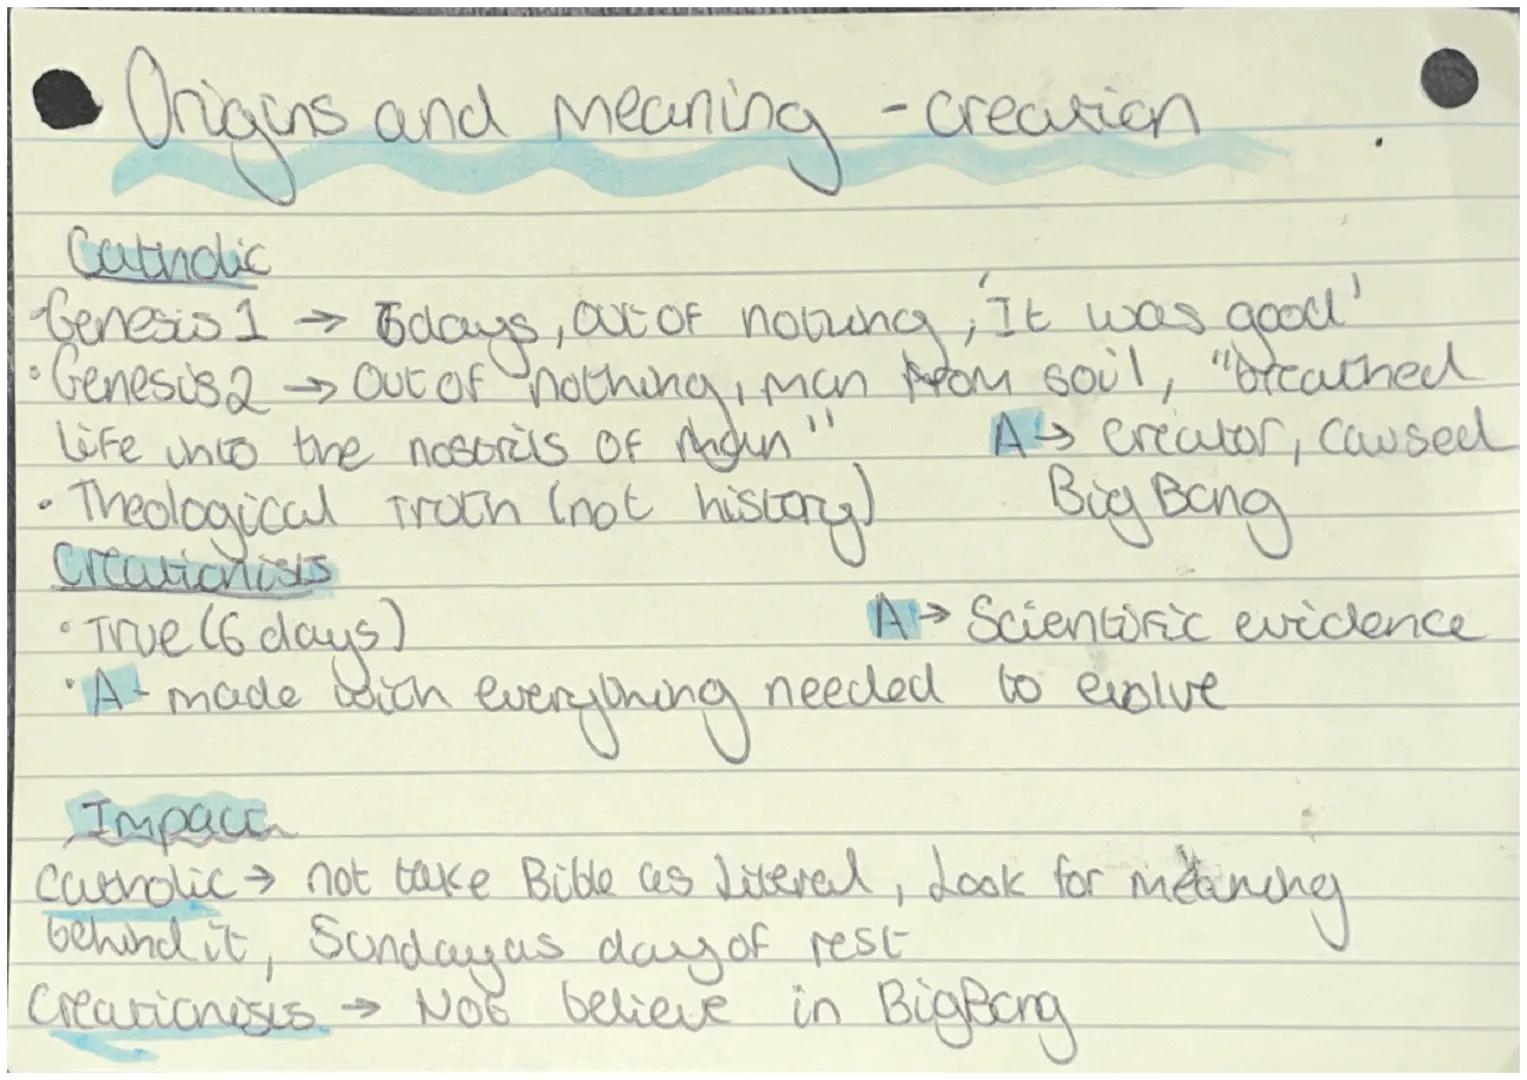 Origins and meaning - creation
Catholic
• Genesis 1 → 6days, out of nothing, 'It was good'
• Genesis 2 → Out of nothing, man from soil, "breathed
life into the nostrils of man"
A → creator, caused
Big Bang
• Theological Truth (not history)
Creationists
• True (6 days)
A → Scientific evidence
• A - made with everything needed to evolve
Impact
Catholic → not take Bible as literal, Look for meaning
behind it, Sunday as day of rest
Creationists → Not believe in Big Bang